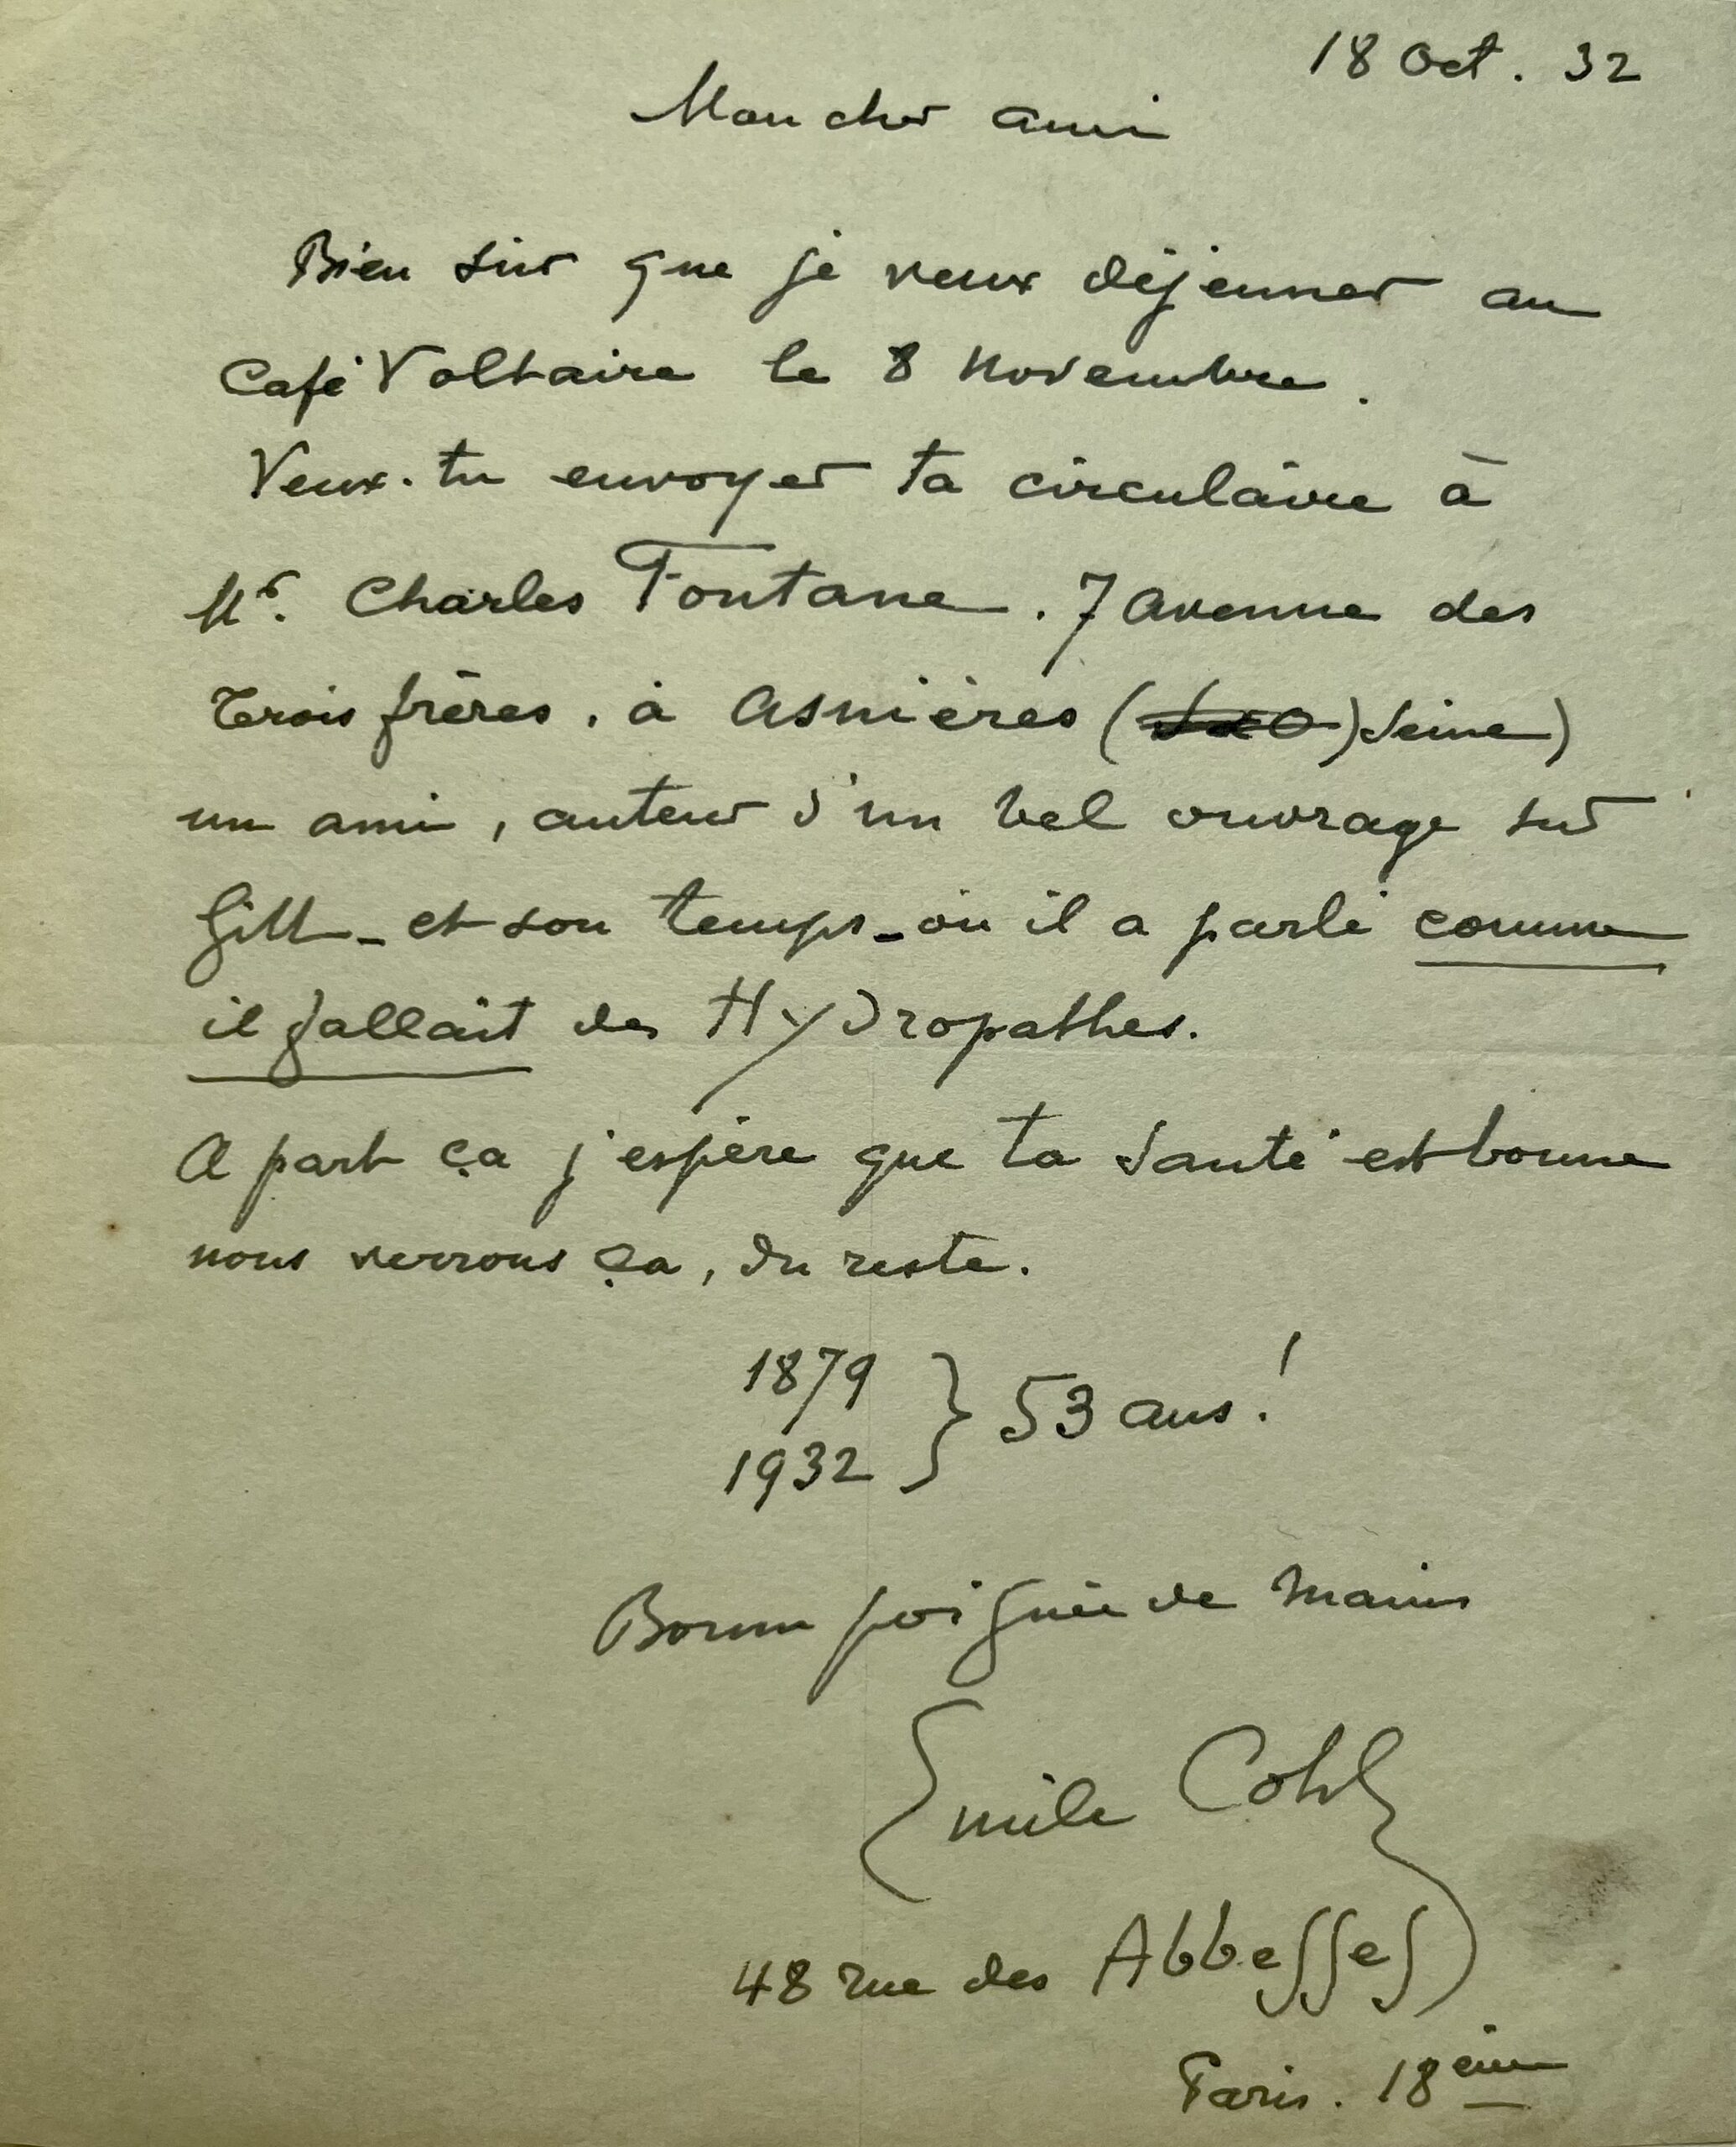 18 Oct. 32
Mon cher ami
Bien sûr que je veux déjeuner au
Café Voltaire le 8 Novembre.
Veux-tu envoyer ta circulaire à
Mr. Charles Fontane. 7 avenue des
Trois frères. à Asnières (Seine)
un ami, auteur d'un bel ouvrage sur
Gill - et son temps - où il a parlé comme
il fallait des Hydropathes.
A part ça j'espère que ta santé est bonne
nous verrons ça, du reste.
1879
1932 } 53 ans!
Bonne poignée de mains
Emile Cohl
48 rue des Abbesses
Paris. 18ème